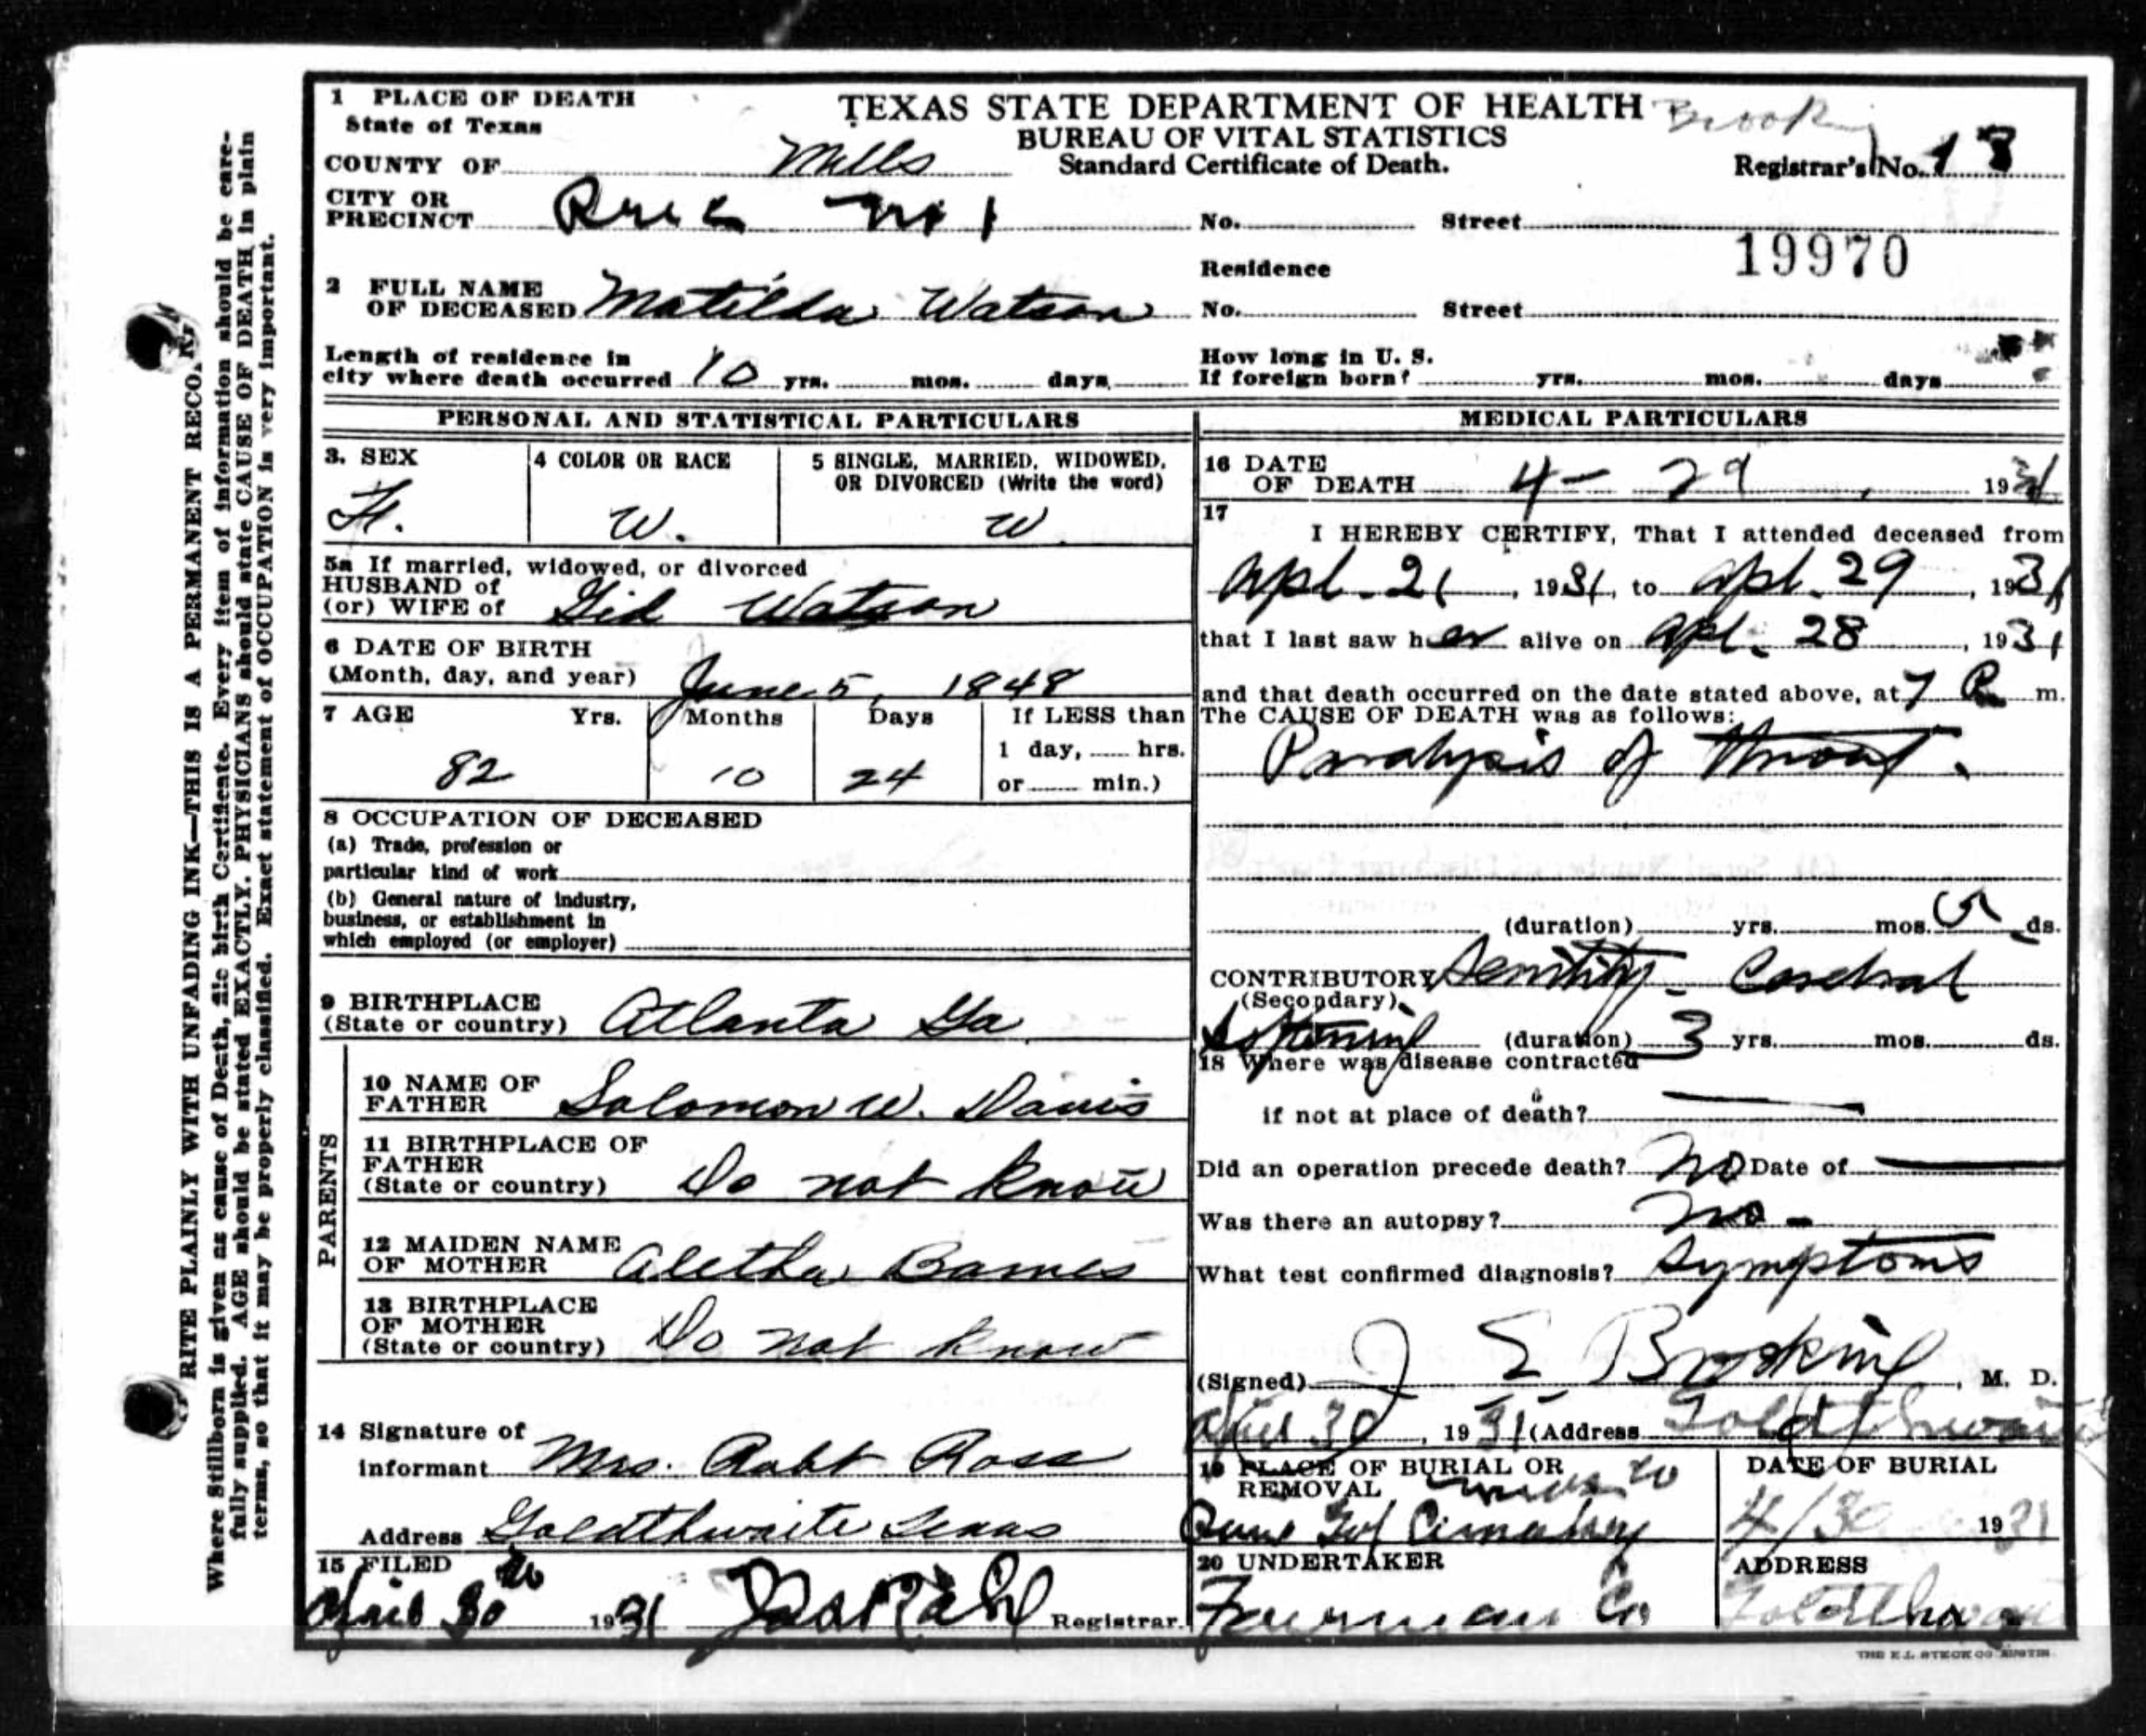 1 PLACE OF DEATH
State of Texas
TEXAS STATE DEPARTMENT OF HEALTH
BUREAU OF VITAL STATISTICS
Standard Certificate of Death.
COUNTY OF Mills
Registrar's No. 18
CITY OR
PRECINCT Prec No 1
No. Street
19970
Residence
2 FULL NAME
OF DECEASED Matilda Watson
No. Street
Length of residence in
city where death occurred 10 yrs. mos. days
How long in U. S.
If foreign born? yrs. mos. days
PERSONAL AND STATISTICAL PARTICULARS
3. SEX
F.
4 COLOR OR RACE
W.
5 SINGLE, MARRIED, WIDOWED,
OR DIVORCED (Write the word)
W
5a If married, widowed, or divorced
HUSBAND of
(or) WIFE of Gid Watson
6 DATE OF BIRTH
(Month, day, and year) June 5, 1848
7 AGE Yrs. Months Days
82 10 24
If LESS than
1 day, hrs.
or min.)
8 OCCUPATION OF DECEASED
(a) Trade, profession or
particular kind of work
(b) General nature of industry,
business, or establishment in
which employed (or employer)
9 BIRTHPLACE
(State or country) Atlanta Ga
PARENTS
10 NAME OF
FATHER Solomon W. Davis
11 BIRTHPLACE OF
FATHER
(State or country) Do not know
12 MAIDEN NAME
OF MOTHER Aletha Barnes
13 BIRTHPLACE
OF MOTHER
(State or country) Do not know
14 Signature of
informant Mrs. Robt Ross
Address Goldthwaite Texas
15 FILED
April 30th 1931 Registrar.
MEDICAL PARTICULARS
16 DATE
OF DEATH 4-29, 1931
17
I HEREBY CERTIFY, That I attended deceased from
Apl. 21, 1931, to Apl. 29, 1931
that I last saw her alive on Apl. 28, 1931
and that death occurred on the date stated above, at 7 P m.
The CAUSE OF DEATH was as follows:
Paralysis of throat.
(duration) yrs. mos. 5 ds.
CONTRIBUTORY Senility - Cerebral
(Secondary)
Softening (duration) 3 yrs. mos. ds.
18 Where was disease contracted
if not at place of death?
Did an operation precede death? No Date of
Was there an autopsy? No -
What test confirmed diagnosis? Symptoms
(Signed) J E Brooking, M. D.
April 30, 1931 (Address Goldthwaite
19 PLACE OF BURIAL OR
REMOVAL
Cemetery
DATE OF BURIAL
4/30 1931
20 UNDERTAKER
Fairman Co
ADDRESS
Goldthwaite
THE E.L. STECK CO. AUSTIN
RITE PLAINLY WITH UNFADING INK—THIS IS A PERMANENT RECO
Where Stillborn is given as cause of Death, file birth Certificate. Every item of information should be care-
fully supplied. AGE should be stated EXACTLY. PHYSICIANS should state CAUSE OF DEATH in plain
terms, so that it may be properly classified. Exact statement of OCCUPATION is very important.